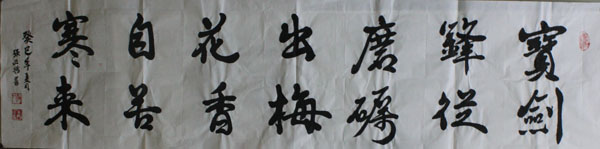 寶劍
鋒從
磨礪
出梅
花香
自苦
寒来
癸巳年